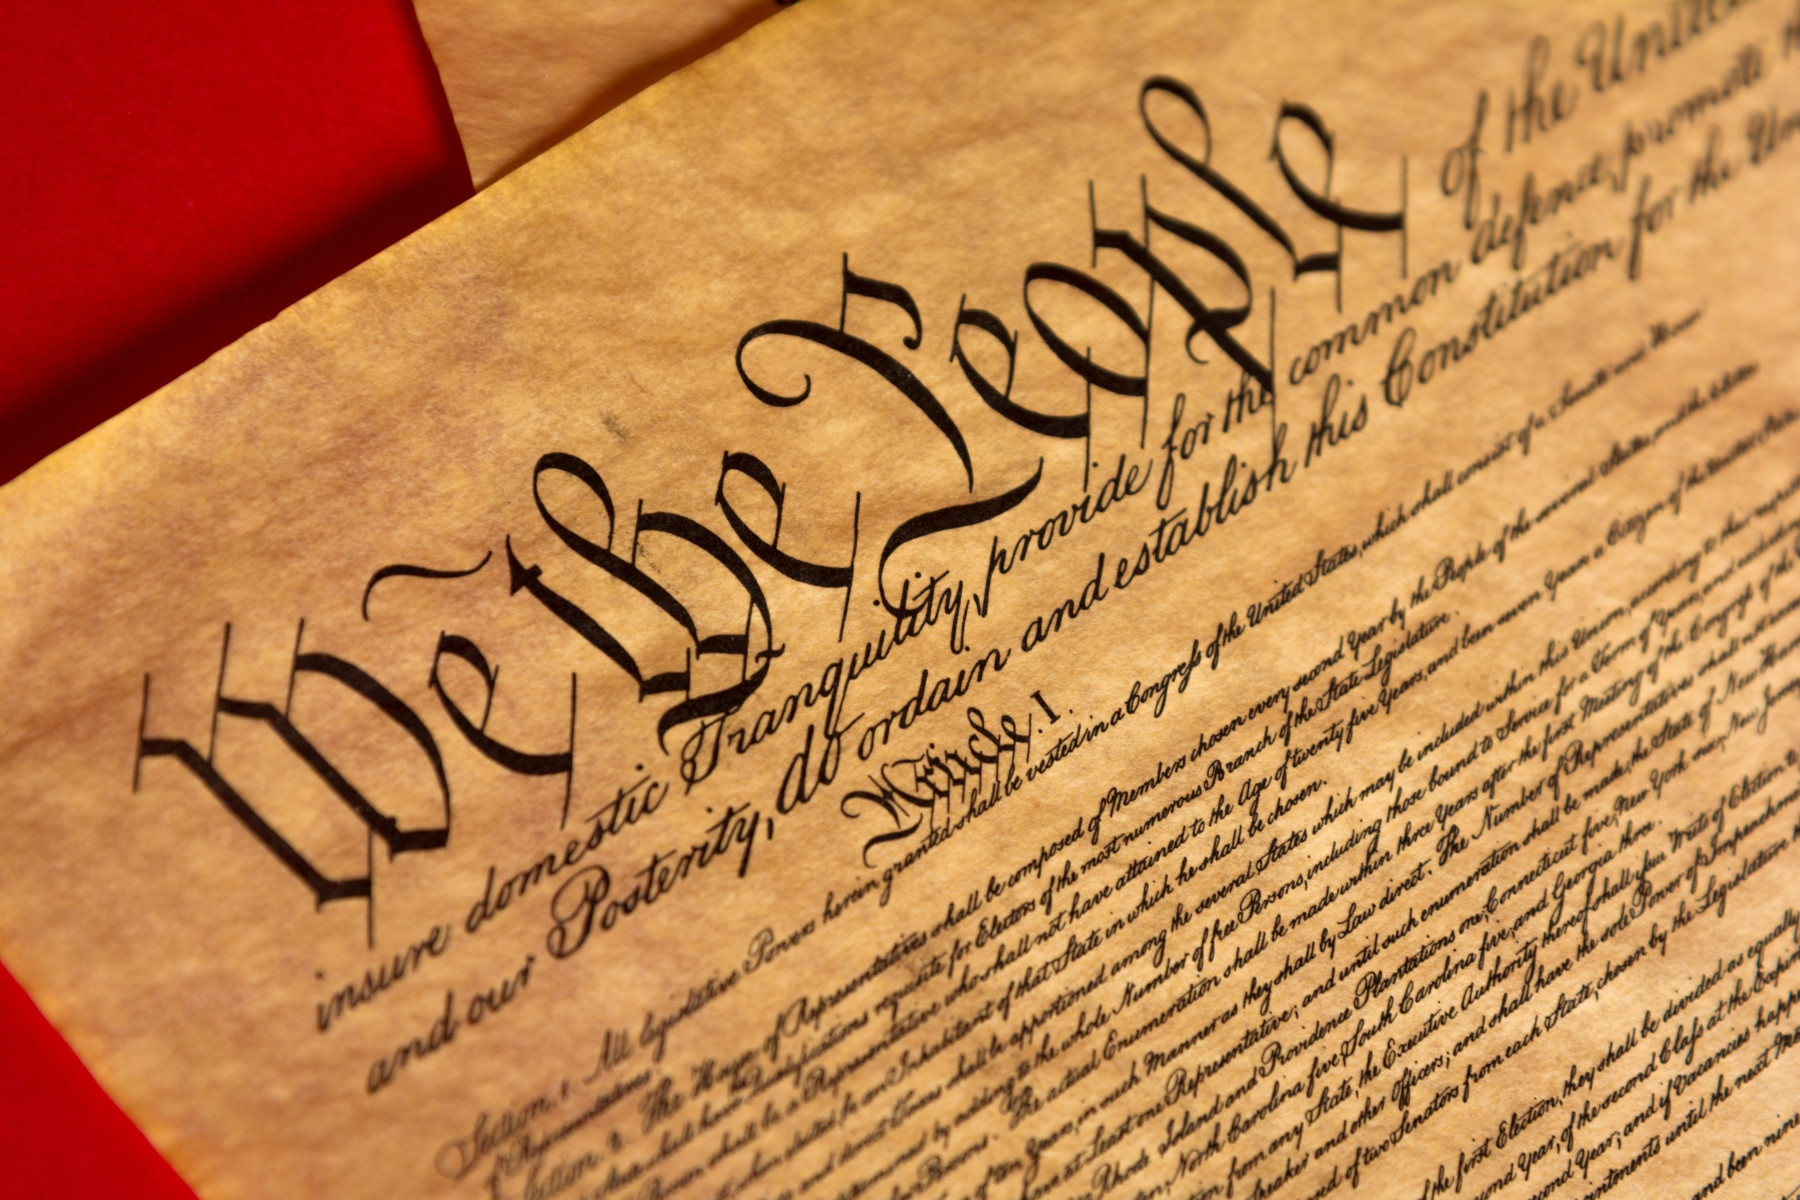 We the People of the United
insure domestic Tranquility, provide for the common defence, promote
and our Posterity, do ordain and establish this Constitution for the
Article. I.
Section. 1. All legislative Powers herein granted shall be vested in a Congress of the United States, which shall consist of a Senate and House
of Representatives.
Section. 2. The House of Representatives shall be composed of Members chosen every second Year by the People of the several States, and the
shall have Qualifications requisite for Electors of the most numerous Branch of the State Legislature.
Person shall be a Representative who shall not have attained to the Age of twenty five Years, and been seven Years a Citizen of the United
when elected, be an Inhabitant of that State in which he shall be chosen.
and direct Taxes shall be apportioned among the several States which may be included within this Union, according to their
by adding to the whole Number of free Persons, including those bound to Service for a Term of Years, and
Persons. The actual Enumeration shall be made within three Years after the first Meeting of the Congress of the
of ten Years, in such Manner as they shall by Law direct. The Number of Representatives shall not
have at Least one Representative; and until such enumeration shall be made, the State of New
Rhode Island and Providence Plantations one, Connecticut five, New York six, New Jersey
North Carolina five, South Carolina five, and Georgia three.
from any State, the Executive Authority thereof shall issue Writs of Election to
Speaker and other Officers; and shall have the sole Power of Impeachment
of two Senators from each State, chosen by the Legislature
of the first Election, they shall be divided as equally
Year, of the second Class at the
second Year; and if Vacancies
until the next
and been nine